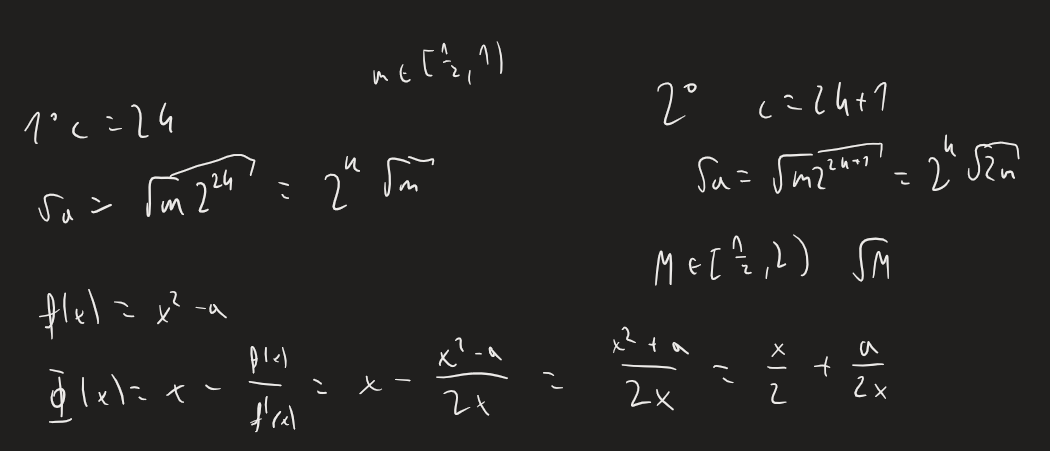 m ∈ [1/2, 1)
1° c = 2k
√a = √(m 2^(2k)) = 2^k √m
2° c = 2k+1
√a = √(m 2^(2k+1)) = 2^k √(2m)
M ∈ [1/2, 2) √M
f(x) = x² - a
Φ(x) = x - f(x)/f'(x) = x - (x² - a)/(2x) = (x² + a)/(2x) = x/2 + a/(2x)